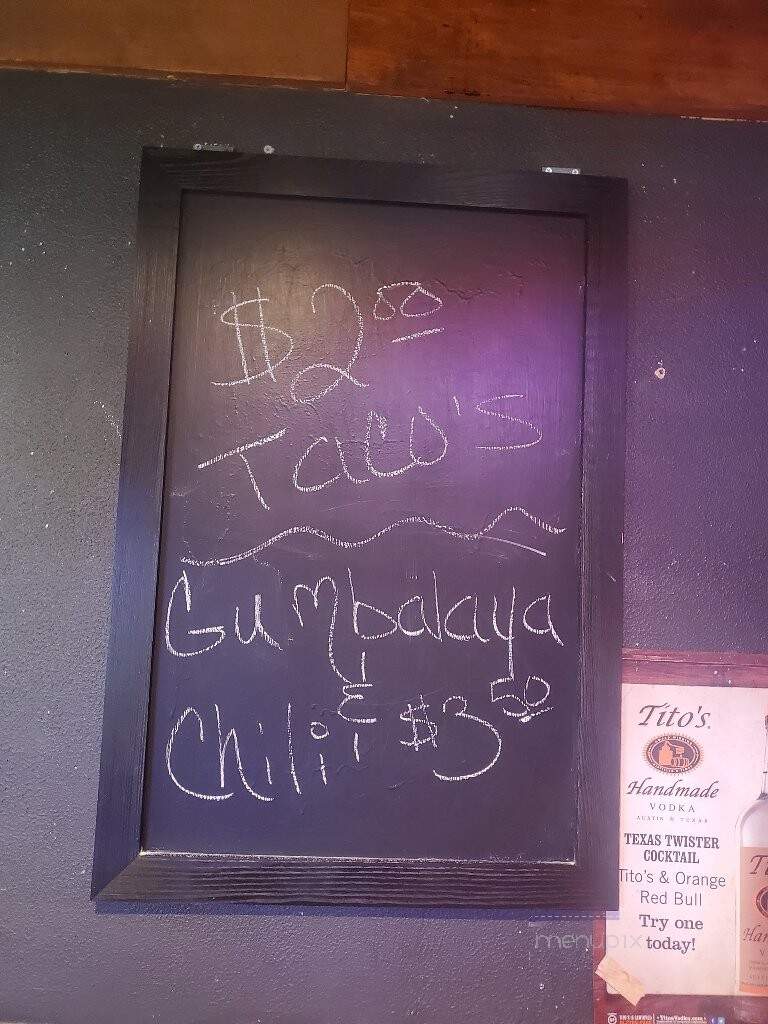 $2.00
Taco's
Gumbalaya
&
Chili $3.50
Tito's
Handmade
VODKA
AUSTIN TEXAS
TEXAS TWISTER
COCKTAIL
Tito's & Orange
Red Bull
Try one
today!
menupix